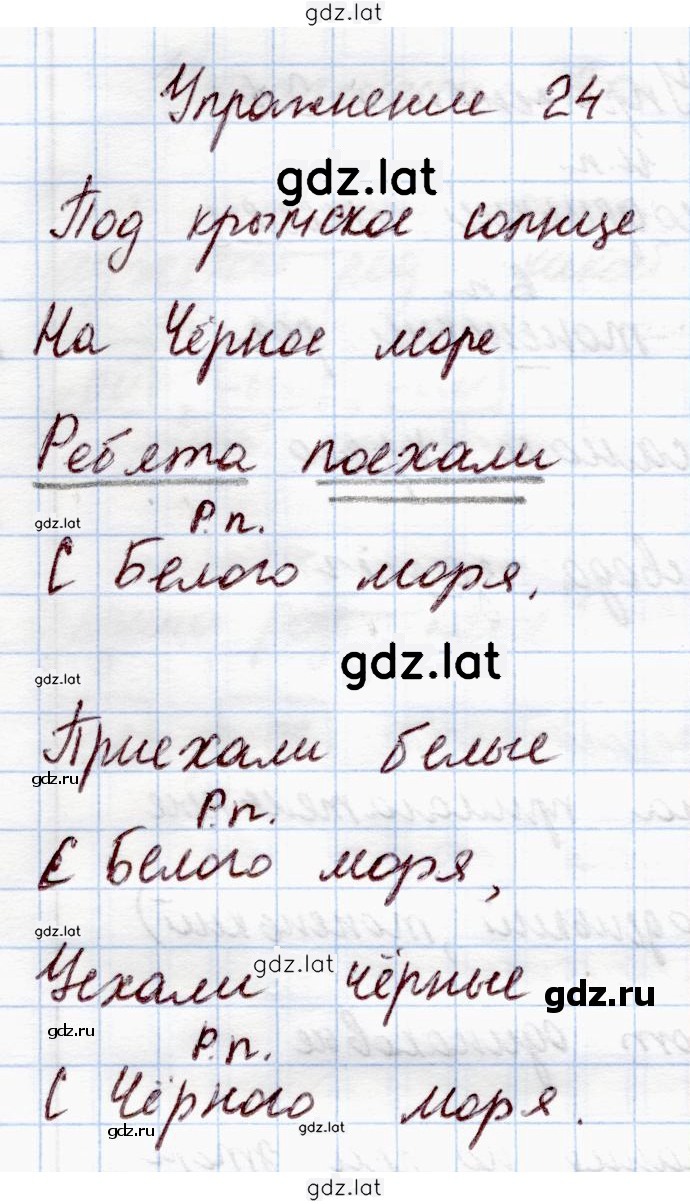 gdz.lat
Упражнение 24
gdz.lat
Под крымское солнце
На Чёрное море
Ребята поехали
gdz.lat
Р.п.
С Белого моря.
gdz.lat
gdz.lat
Приехали белые
gdz.lat
Р.п.
С Белого моря,
gdz.lat
Уехали чёрные
gdz.lat
gdz.lat
gdz.lat
Р.п.
С Чёрного моря.
gdz.lat
gdz.lat
gdz.lat